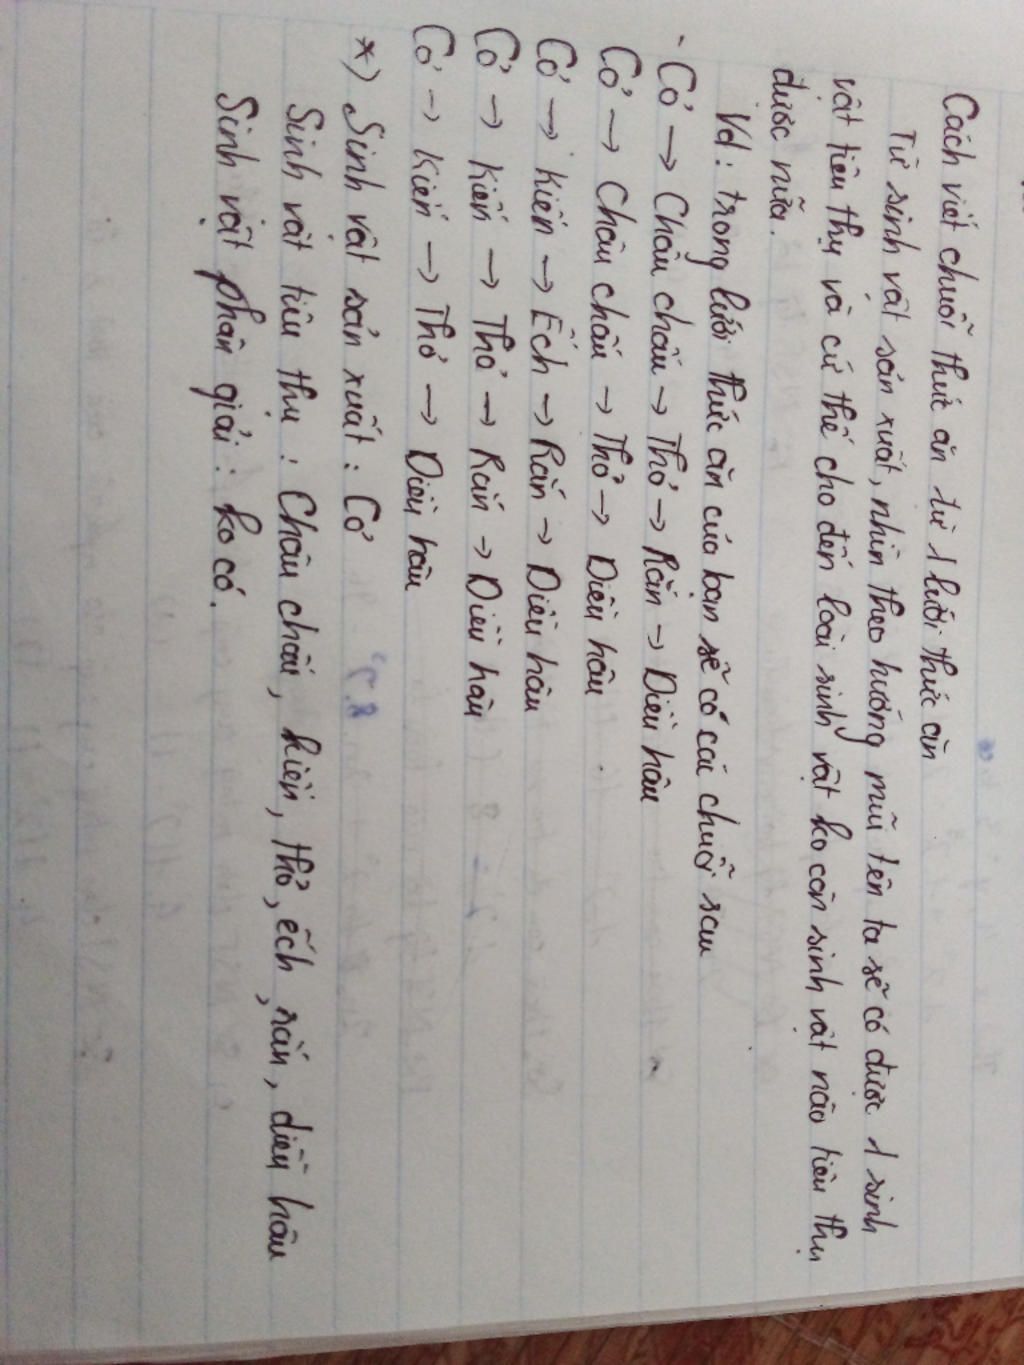 Cách viết chuỗi thức ăn từ 1 lưới thức ăn
Từ sinh vật sản xuất, nhìn theo hướng mũi tên ta sẽ có được 1 sinh
vật tiêu thụ và cứ thế cho đến loài sinh vật ko còn sinh vật nào tiêu thụ
được nữa.
Vd: trong lưới thức ăn của bạn sẽ có các chuỗi sau
- Cỏ → Châu chấu → Thỏ → Rắn → Diều hâu
Cỏ → Châu chấu → Thỏ → Diều hâu
Cỏ → Kiến → Ếch → Rắn → Diều hâu
Cỏ → Kiến → Thỏ → Rắn → Diều hâu
Cỏ → Kiến → Thỏ → Diều hâu
*) Sinh vật sản xuất: Cỏ
Sinh vật tiêu thụ: Châu chấu, kiến, thỏ, ếch, rắn, diều hâu
Sinh vật phân giải: ko có.